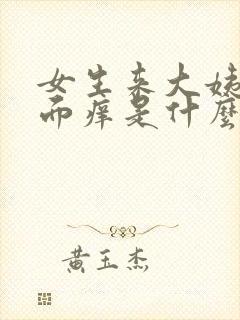 女生来大姨
而痒是什麼
黄玉杰